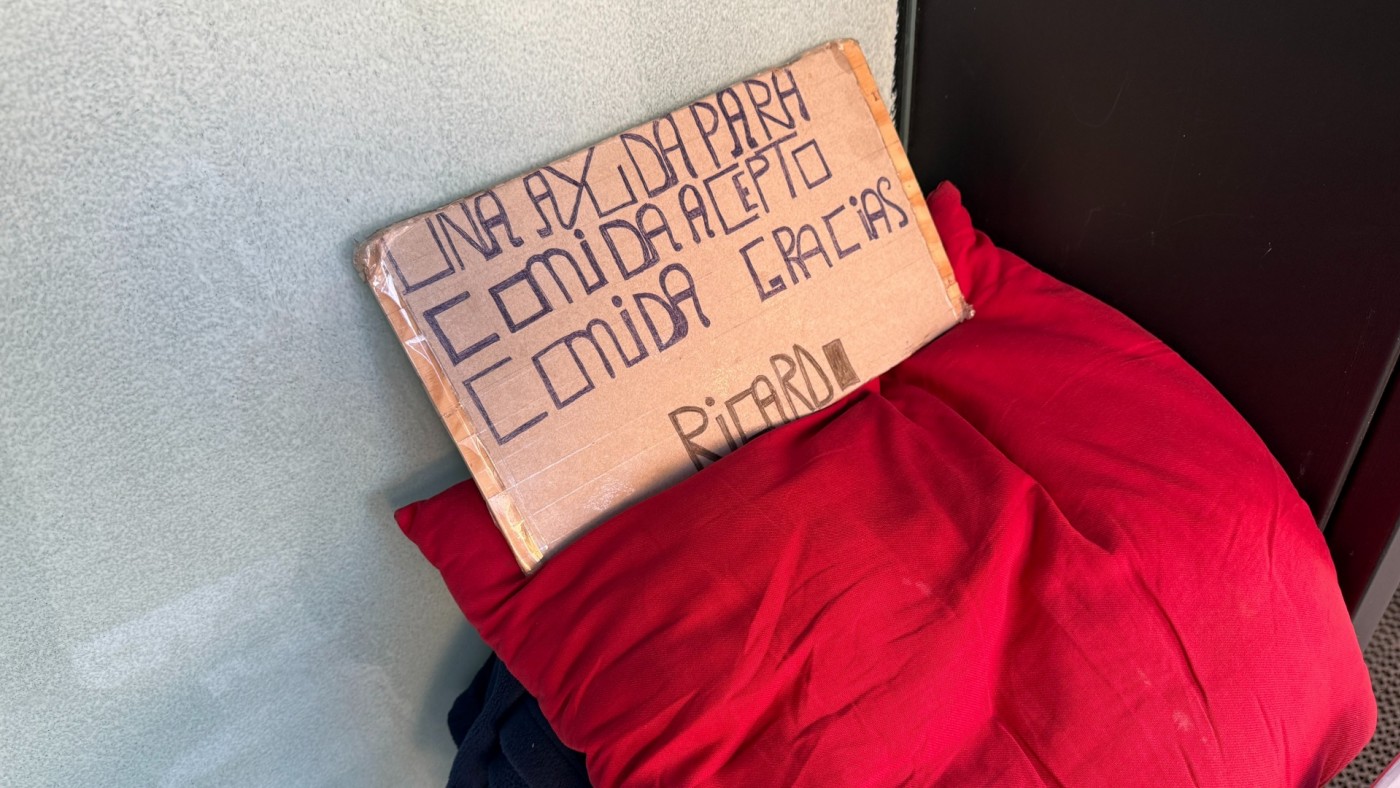 UNA AYUDA PARA
COMiDA ACEPTO
COMiDA GRACiAS
RiCARDO